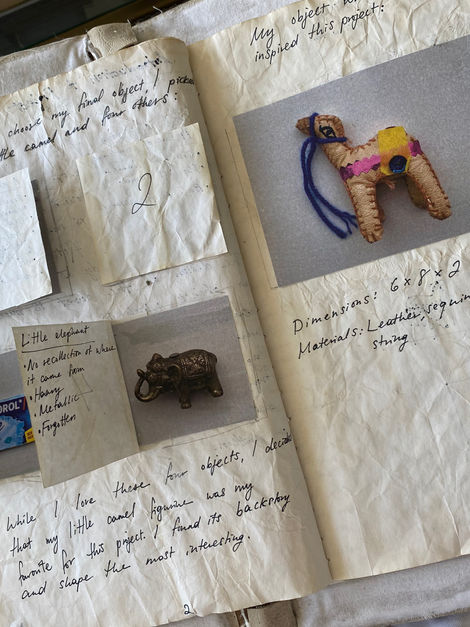 choose my final object, I picked
little camel and four others:
2
DROL
Little elephant
• No recollection of where
it came from
• Heavy
• Metallic
• Forgotten
While I love these four objects, I decided
that my little camel figurine was my
favorite for this project. I found its backstory
and shape the most interesting.
2
My object
inspired this project:
Dimensions: 6 x 8 x 2
Materials: Leather, sequin
string